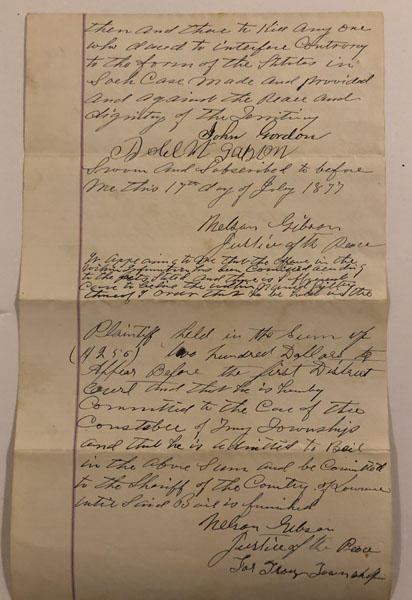 then and there to Kill any one
who dared to interfere Contrary
to the form of the Statutes in
Such Case Made and provided
and against the Peace and
dignity of the Territory
John Gordon
Sworn and Subscribed to before
Me this 17th day of July 1877
Nelson Gibson
Justice of the Peace
It appearing to me that the offence in the
within has been Committed
order that he be held
Plaintiff held in the Sum of
two hundred Dollars to
Appear Before the first District
Court and that he is hereby
Committed to the Care of the
Constable of Troy Township
and that he is admitted to Bail
in the above Sum and be Committed
to the Sheriff of the County of Lawrence
until Said Bail is furnished
Nelson Gibson
Justice of the Peace
for Troy Township